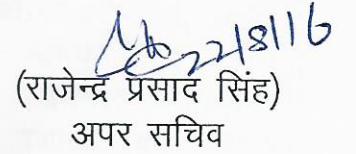 22/8/16
(राजेन्द्र प्रसाद सिंह)
अपर सचिव